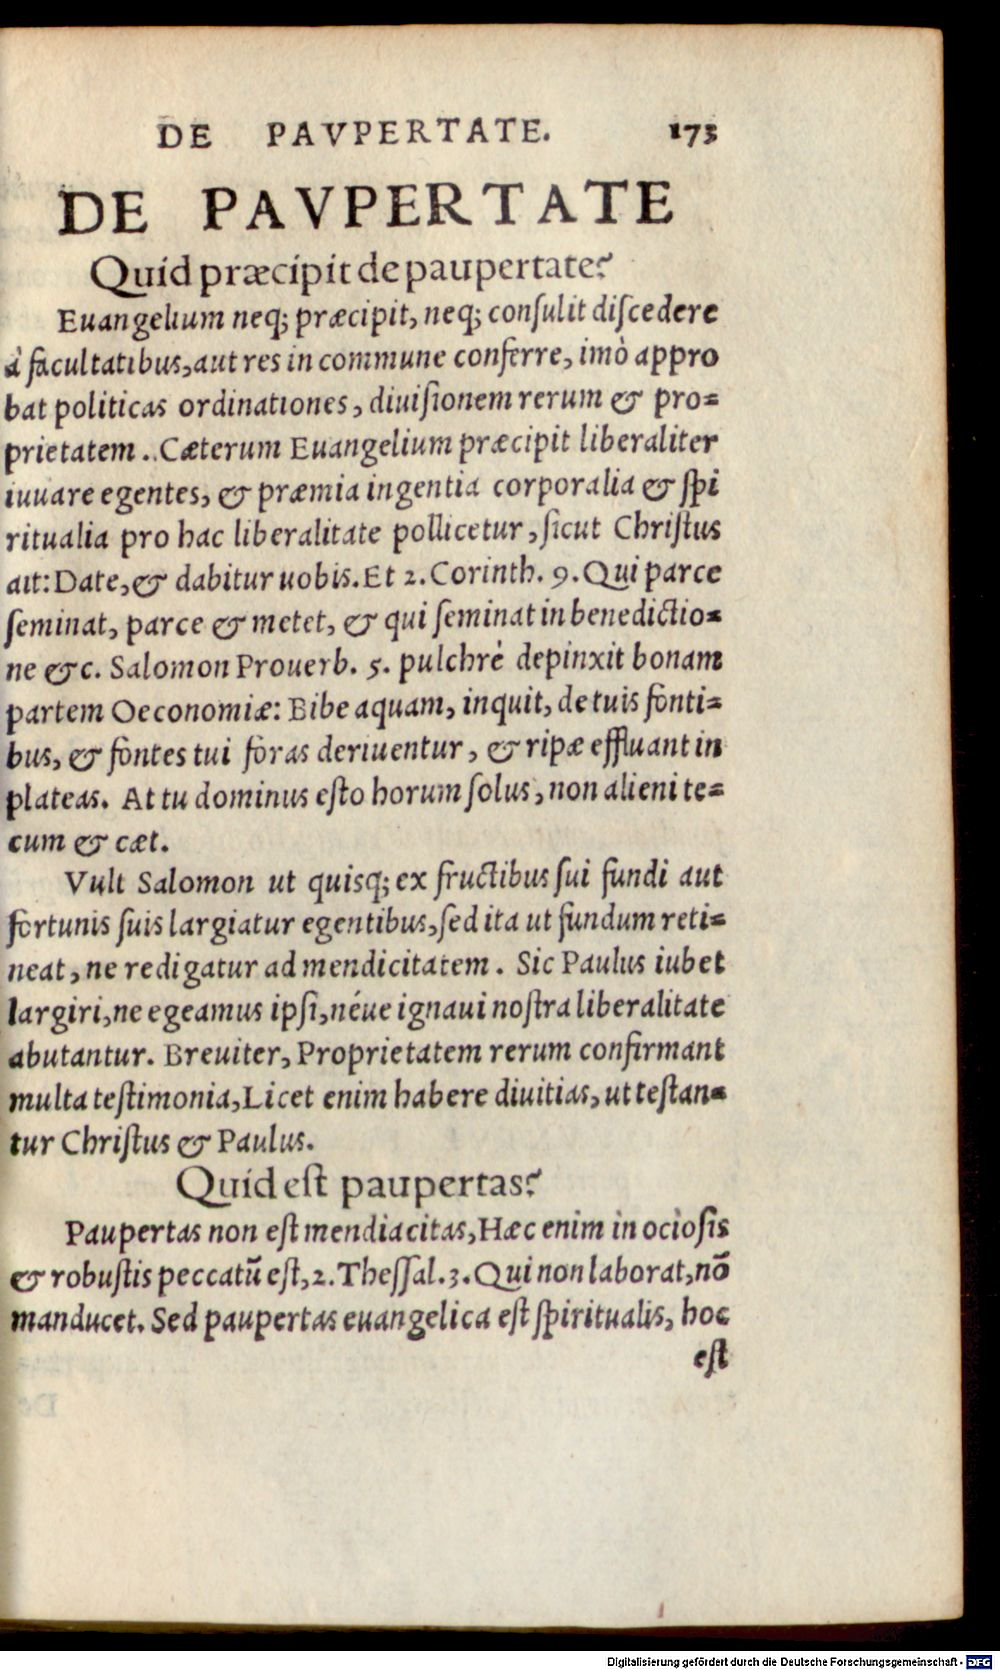 DE PAVPERTATE. 173
DE PAVPERTATE
Quid præcipit de paupertate?
Euangelium neq; præcipit, neq; conſulit diſcedere
à facultatibus, aut res in commune conferre, imò appro
bat politicas ordinationes, diuiſionem rerum & pro=
prietatem. Cæterum Euangelium præcipit liberaliter
iuuare egentes, & præmia ingentia corporalia & ſpi
ritualia pro hac liberalitate pollicetur, ſicut Chriſtus
ait: Date, & dabitur uobis. Et 2. Corinth. 9. Qui parce
ſeminat, parce & metet, & qui ſeminat in benedictio=
ne &c. Salomon Prouerb. 5. pulchrè depinxit bonam
partem Oeconomiæ: Bibe aquam, inquit, de tuis fonti=
bus, & fontes tui foras deriuentur, & ripæ effluant in
plateas. At tu dominus eſto horum ſolus, non alieni te=
cum & cæt.
Vult Salomon ut quisq; ex fructibus ſui fundi aut
fortunis ſuis largiatur egentibus, ſed ita ut fundum reti=
neat, ne redigatur ad mendicitatem. Sic Paulus iubet
largiri, ne egeamus ipſi, néue ignaui noſtra liberalitate
abutantur. Breuiter, Proprietatem rerum confirmant
multa teſtimonia, Licet enim habere diuitias, ut teſtan=
tur Chriſtus & Paulus.
Quid eſt paupertas?
Paupertas non eſt mendiacitas, Hæc enim in ocioſis
& robuſtis peccatū eſt, 2. Theſſal. 3. Qui non laborat, nō
manducet. Sed paupertas euangelica eſt ſpiritualis, hoc
eſt
Digitalisierung gefördert durch die Deutsche Forschungsgemeinschaft - DFG